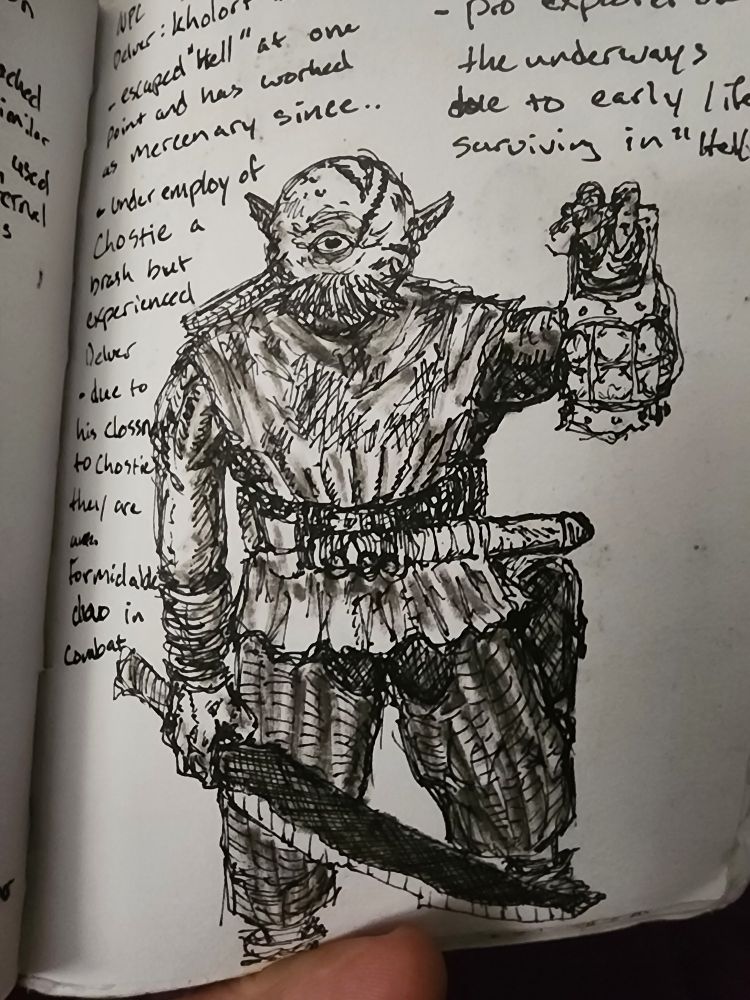 on
ached
imilar
used
ernal
s
NPC
Delver: kholort
- escaped "Hell" at one
point and has worked
as mercenary since..
- under employ of
Chostie a
brash but
experienced
Delver
• due to
his clossn
to Chostie
they are
formidable
duo in
combat
- pro explorer
the underways
due to early life
surviving in "Hell